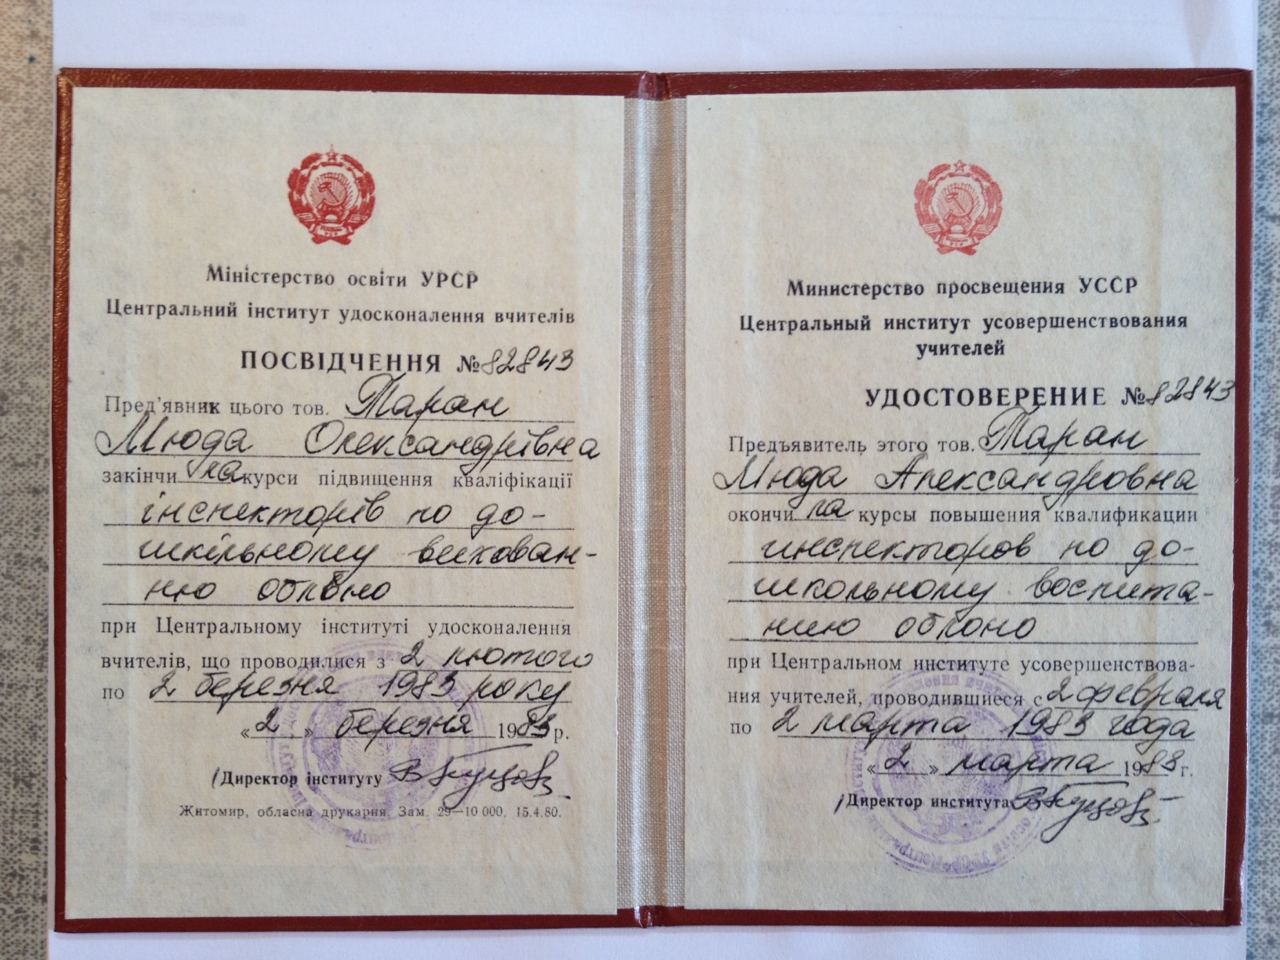 Міністерство освіти УРСР
Центральний інститут удосконалення вчителів
ПОСВІДЧЕННЯ №82843
Пред'явник цього тов. Таран
Люда Олександрівна
закінчи ла курси підвищення кваліфікації
інспекторів по до-
шкільному вихован-
ню облвно
при Центральному інституті удосконалення
вчителів, що проводилися з 2 лютого
по 2 березня 1983 року
«2» березня 1983 р.
Директор інституту
Житомир, обласна друкарня. Зам. 29—10 000, 15.4.80.
Министерство просвещения УССР
Центральный институт усовершенствования
учителей
УДОСТОВЕРЕНИЕ №82843
Предъявитель этого тов. Таран
Люда Александровна
окончи ла курсы повышения квалификации
инспекторов по до-
школьному воспита-
нию облоно
при Центральном институте усовершенствова-
ния учителей, проводившиеся с 2 февраля
по 2 марта 1983 года
«2» марта 1983 г.
Директор института